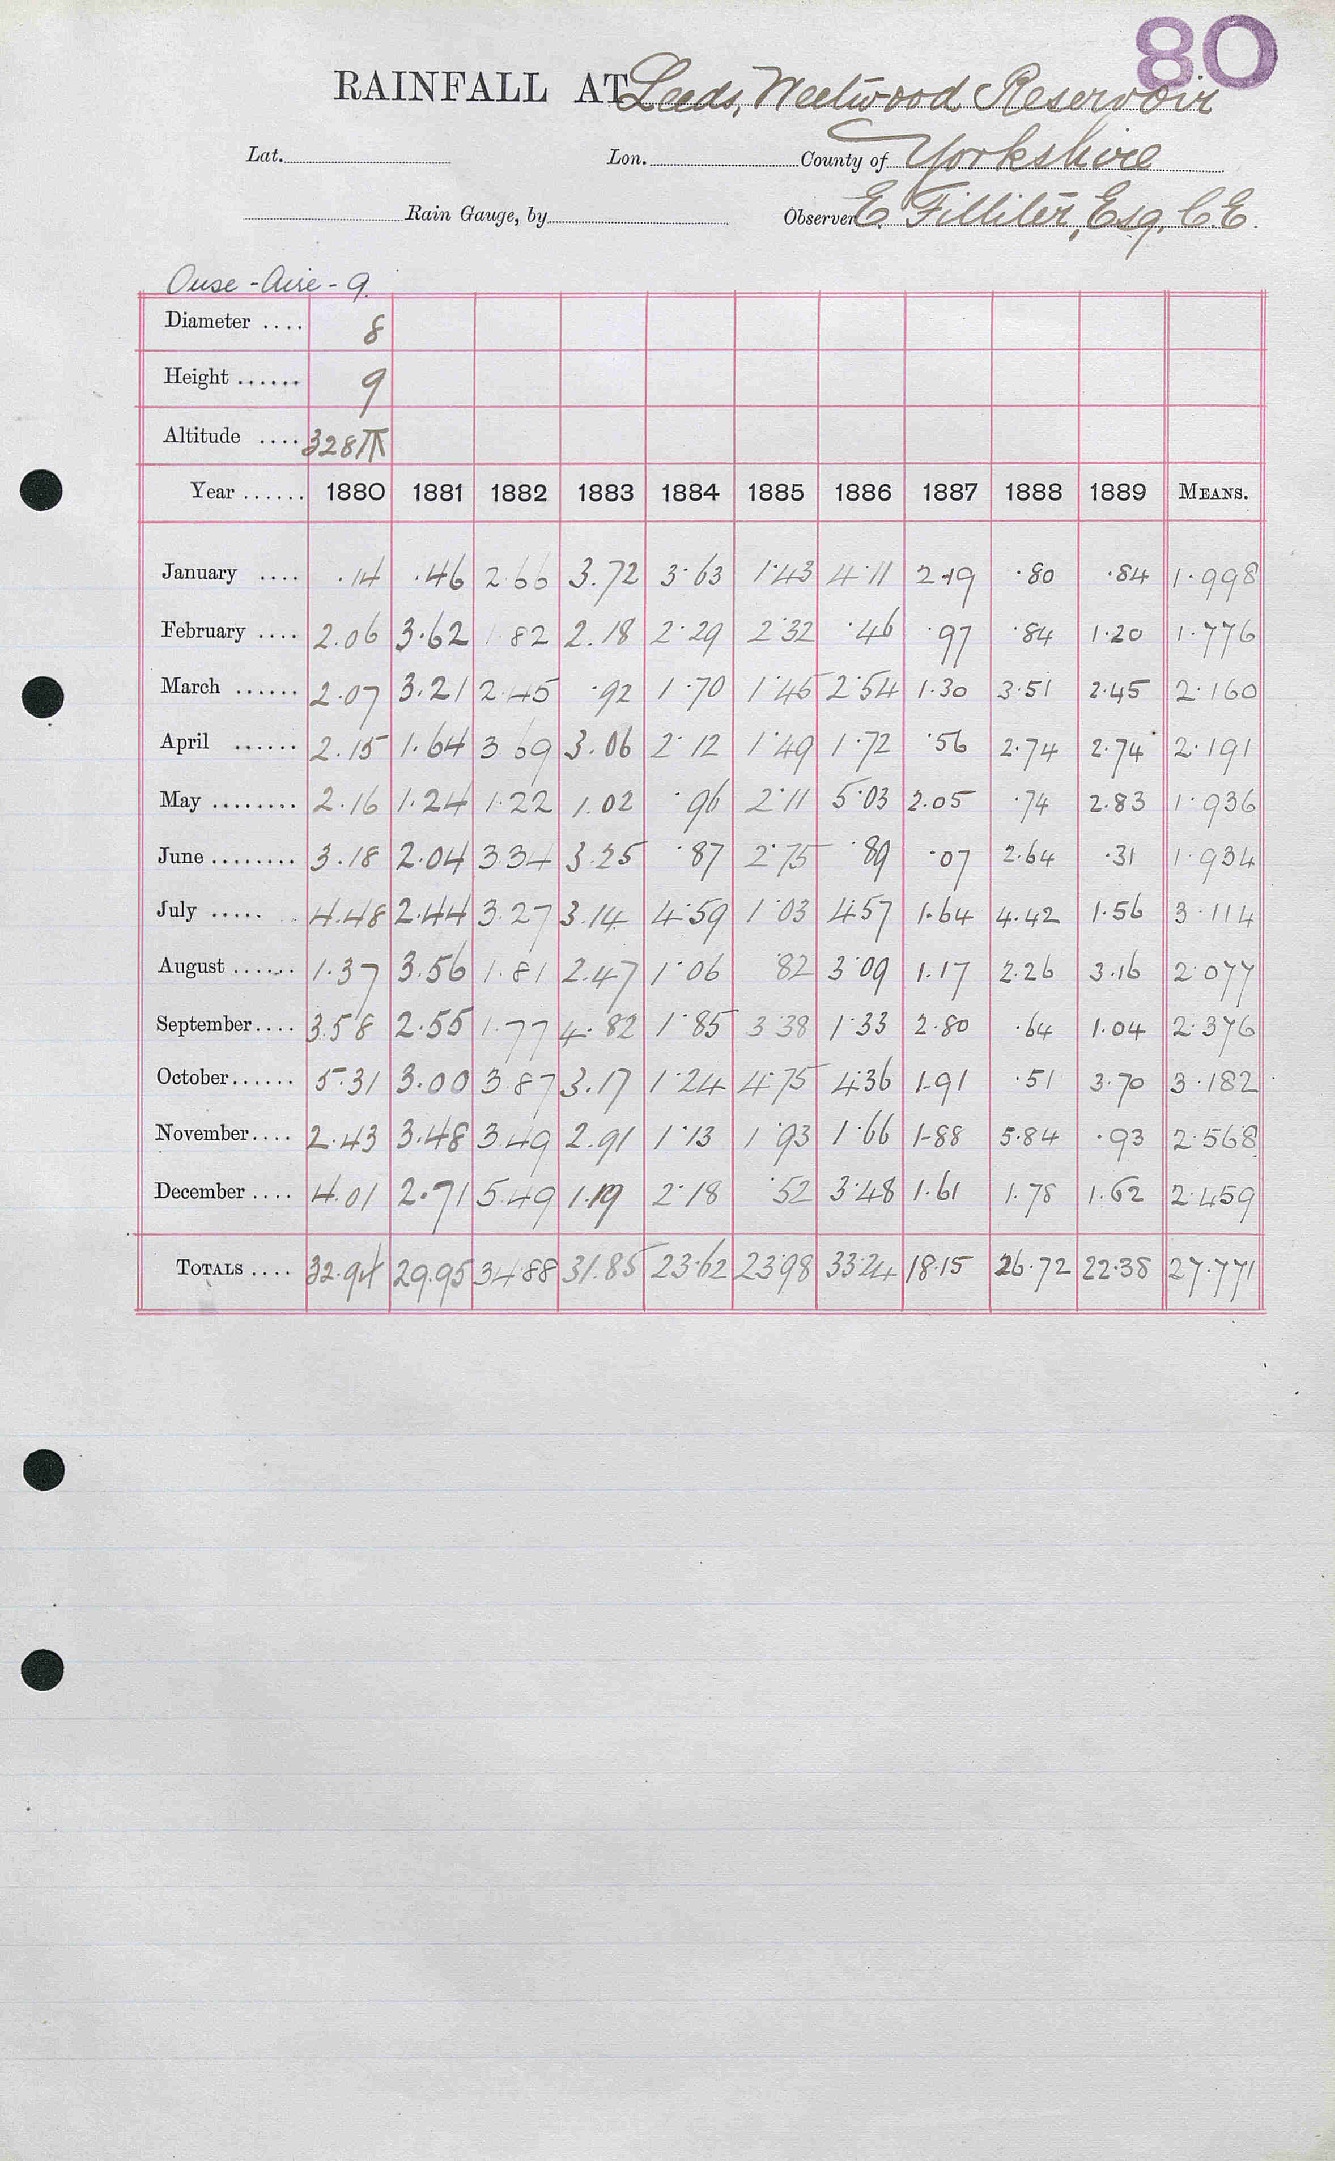 80
RAINFALL AT Leeds, Weetwood Reservoir
Lat. Lon. County of Yorkshire
Rain Gauge, by Observer E. Filliter, Esq, C.E.
Ouse - Aire - 9.
Diameter .... 8
Height ...... 9
Altitude .... 328
Year ...... 1880 1881 1882 1883 1884 1885 1886 1887 1888 1889 MEANS.
January .... .14 .46 2.66 3.72 3.63 1.43 4.11 2.19 .80 .84 1.998
February .... 2.06 3.62 1.82 2.18 2.29 2.32 .46 .97 .84 1.20 1.776
March ...... 2.07 3.21 2.45 .92 1.70 1.45 2.54 1.30 3.51 2.45 2.160
April ...... 2.15 1.64 3.69 3.06 2.12 1.49 1.72 .56 2.74 2.74 2.191
May ........ 2.16 1.24 1.22 1.02 .96 2.11 5.03 2.05 .74 2.83 1.936
June ........ 3.18 2.04 3.34 3.25 .87 2.75 .89 .07 2.64 .31 1.934
July ..... 4.48 2.44 3.27 3.14 4.59 1.03 4.57 1.64 4.42 1.56 3.114
August ...... 1.37 3.56 1.81 2.47 1.06 .82 3.09 1.17 2.26 3.16 2.077
September .... 3.58 2.55 1.77 4.82 1.85 3.38 1.33 2.80 .64 1.04 2.376
October ...... 5.31 3.00 3.87 3.17 1.24 4.75 4.36 1.91 .51 3.70 3.182
November .... 2.43 3.48 3.49 2.91 1.13 1.93 1.66 1.88 5.84 .93 2.568
December .... 4.01 2.71 5.49 1.19 2.18 .52 3.48 1.61 1.78 1.62 2.459
TOTALS .... 32.94 29.95 34.88 31.85 23.62 23.98 33.24 18.15 26.72 22.38 27.771